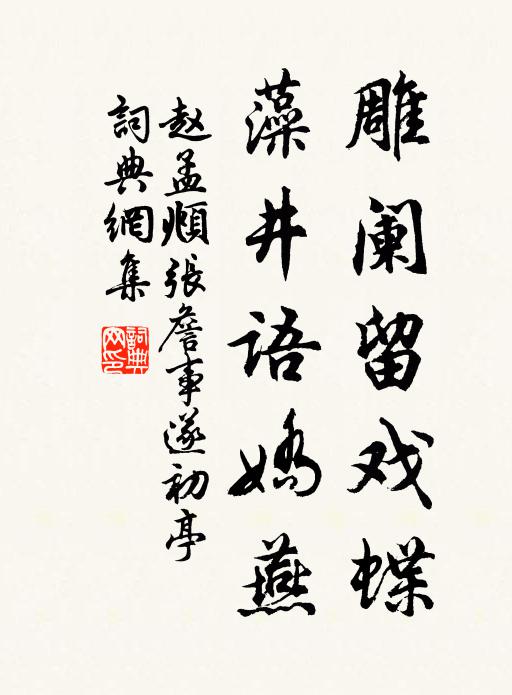 雕阑留戏蝶
藻井语娇燕
赵孟頫張詹事遂初亭
詞典網集
詞典网印